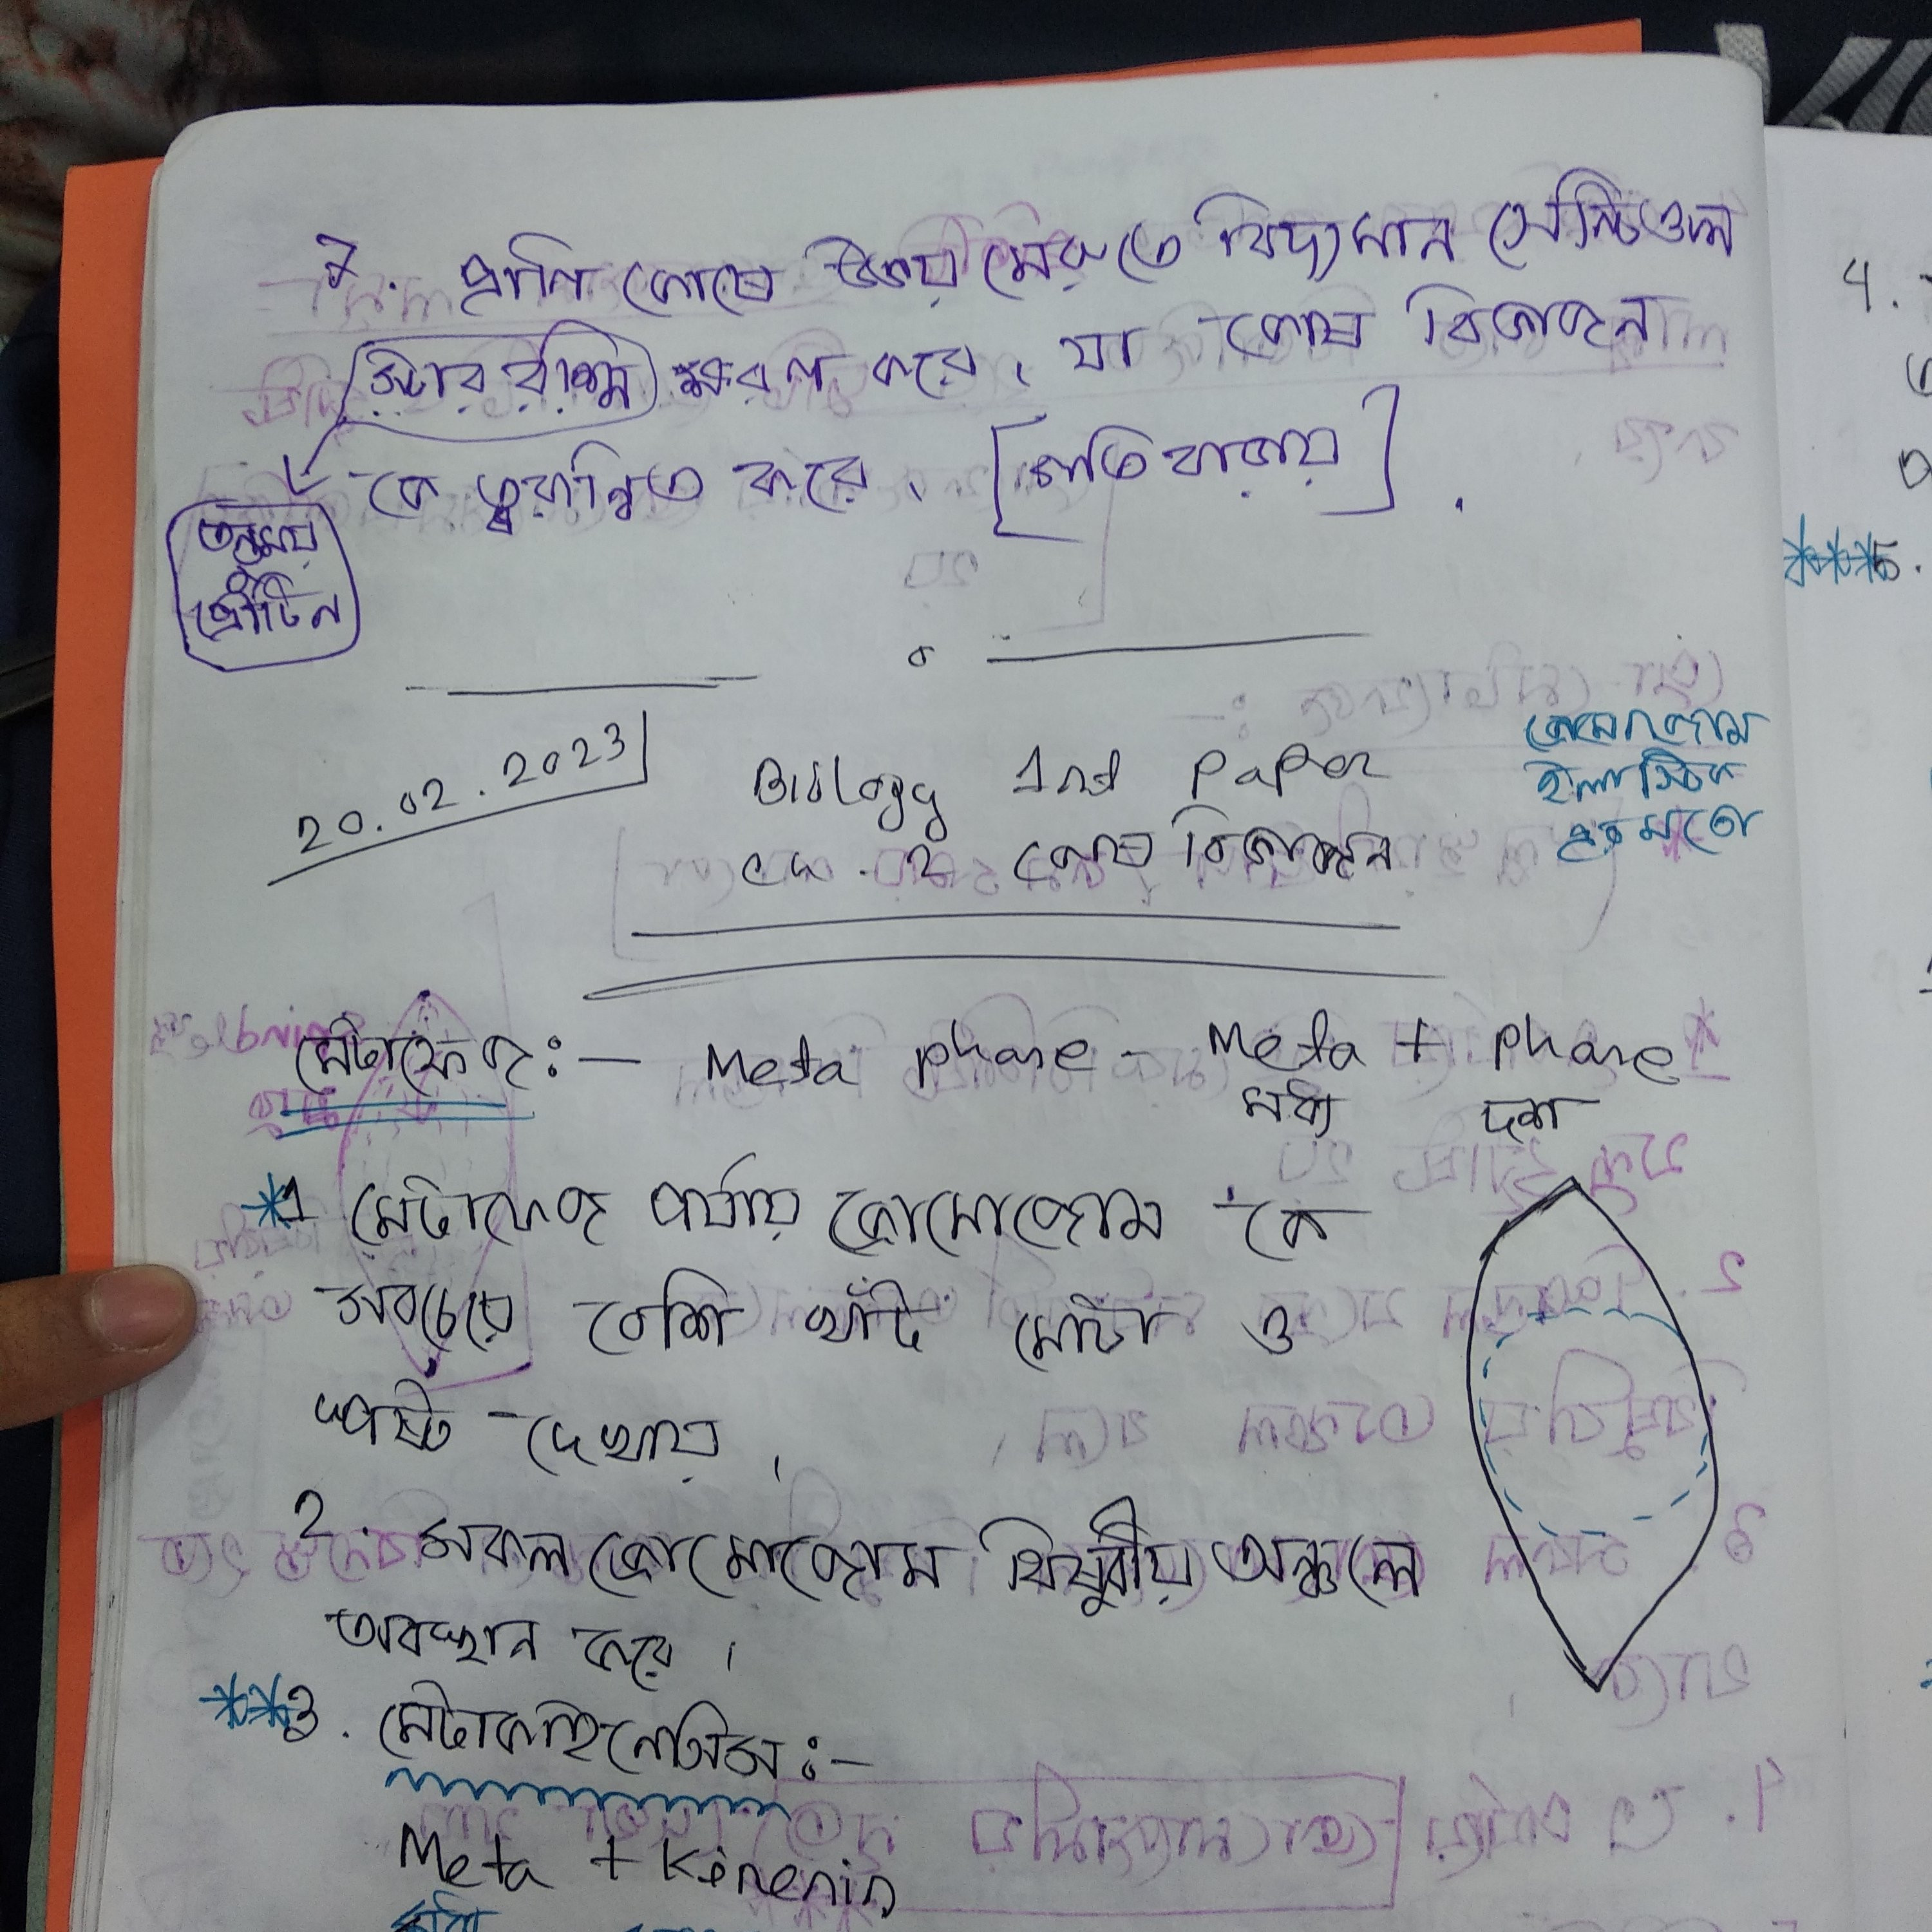 7. প্রানি কোষে উভয় মেরুতে বিদ্যমান সেন্ট্রিওল
অ্যাস্টার রশ্মি ক্ষরণ করে, যা কোষ বিভাজন
কে ত্বরান্বিত করে। [গতি বাড়ায়].
তন্তুময়
প্রোটিন
20.02.2023
Biology 1nd Paper
ch. 2 কোষ বিভাজন
ক্রোমোজোম
ইলাস্টিক
এর মতো
মেটাফেজ:— Meta phase - Meta + phase
মধ্য দশা
*1 মেটাফেজ পর্যায় ক্রোমোজোম কে
সবচেয়ে বেশি খাঁট মোটা ও
স্পষ্ট দেখায়।
2. সকল ক্রোমোজোম বিষুবীয় অঞ্চলে
অবস্থান করে।
**3. মেটাকাইনেসিস:—
Meta + Kinenin
মধ্য
4.
***5.